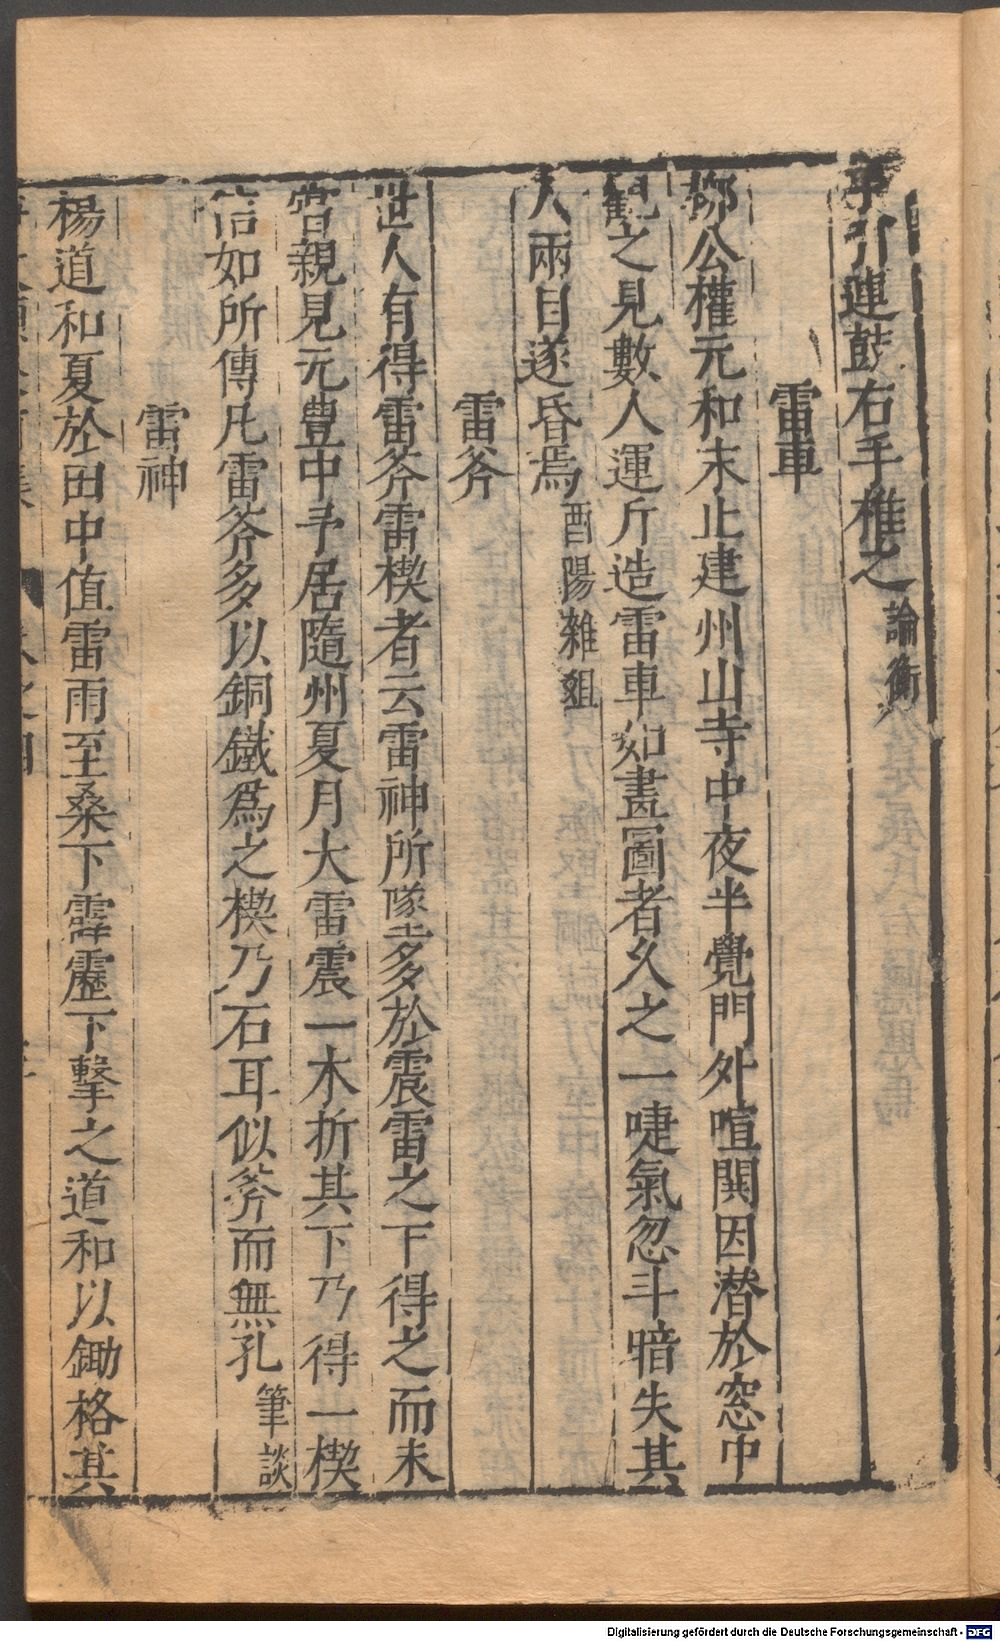 手引連鼓右手椎之論衡
雷車
柳公權元和末止建州山寺中夜半覺門外喧鬨因潜於窓中
觀之見數人運斤造雷車如畫圖者久之一啑氣忽斗暗失其
人兩目遂昏焉酉陽雜俎
雷斧
世人有得雷斧雷楔者云雷神所墜多於震雷之下得之而未
嘗親見元豊中予居隨州夏月大雷震一木折其下乃得一楔
信如所傳凡雷斧多以銅鐵爲之楔乃石耳似斧而無孔筆談
雷神
楊道和夏於田中值雷雨至桑下霹靂下擊之道和以鋤格其
卷之四
Digitalisierung gefördert durch die Deutsche Forschungsgemeinschaft - DFG